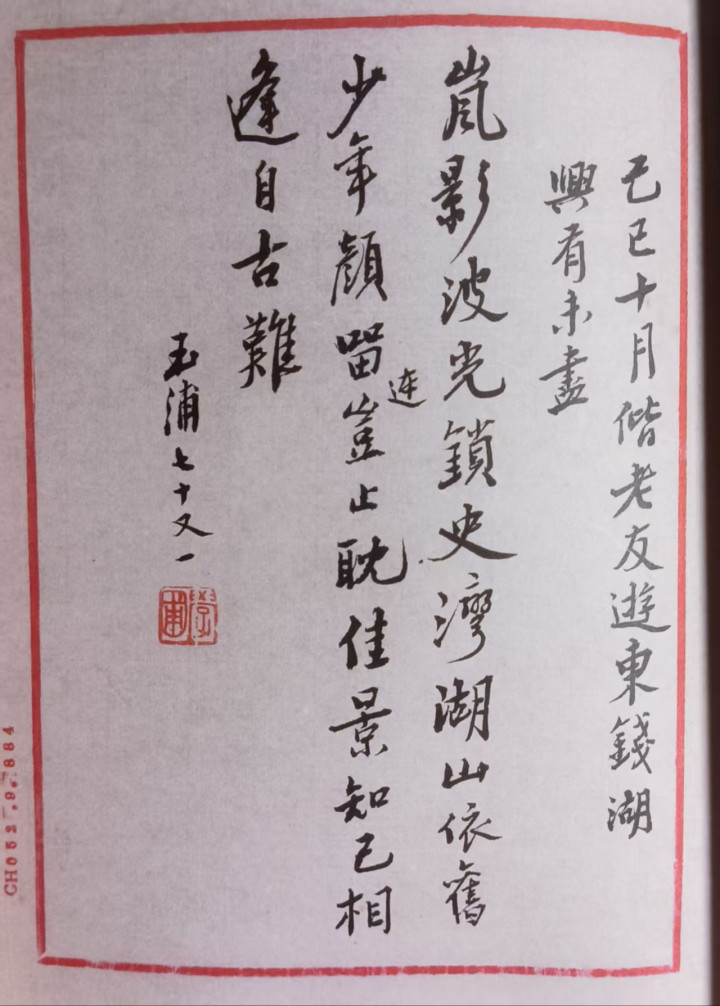 己巳十月偕老友遊東錢湖
興有未盡
嵐影波光鎖史灣湖山依舊
少年顏留連豈止耽佳景知己相
逢自古難
玉浦七十又一